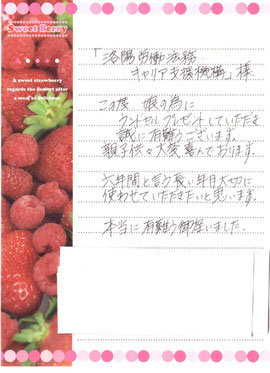 Sweet Berry
A sweet strawberry
regards the dessert after
a meal as delicious.
「洛陽労働法務
キャリア支援機構」様
この度 娘の為に
ランドセルプレゼントしていただき
誠に有難うございます。
親子共々大変喜んでおります。
六年間と言う長い年月大切に
使わせていただきたいと思います。
本当に有難う御座いました。